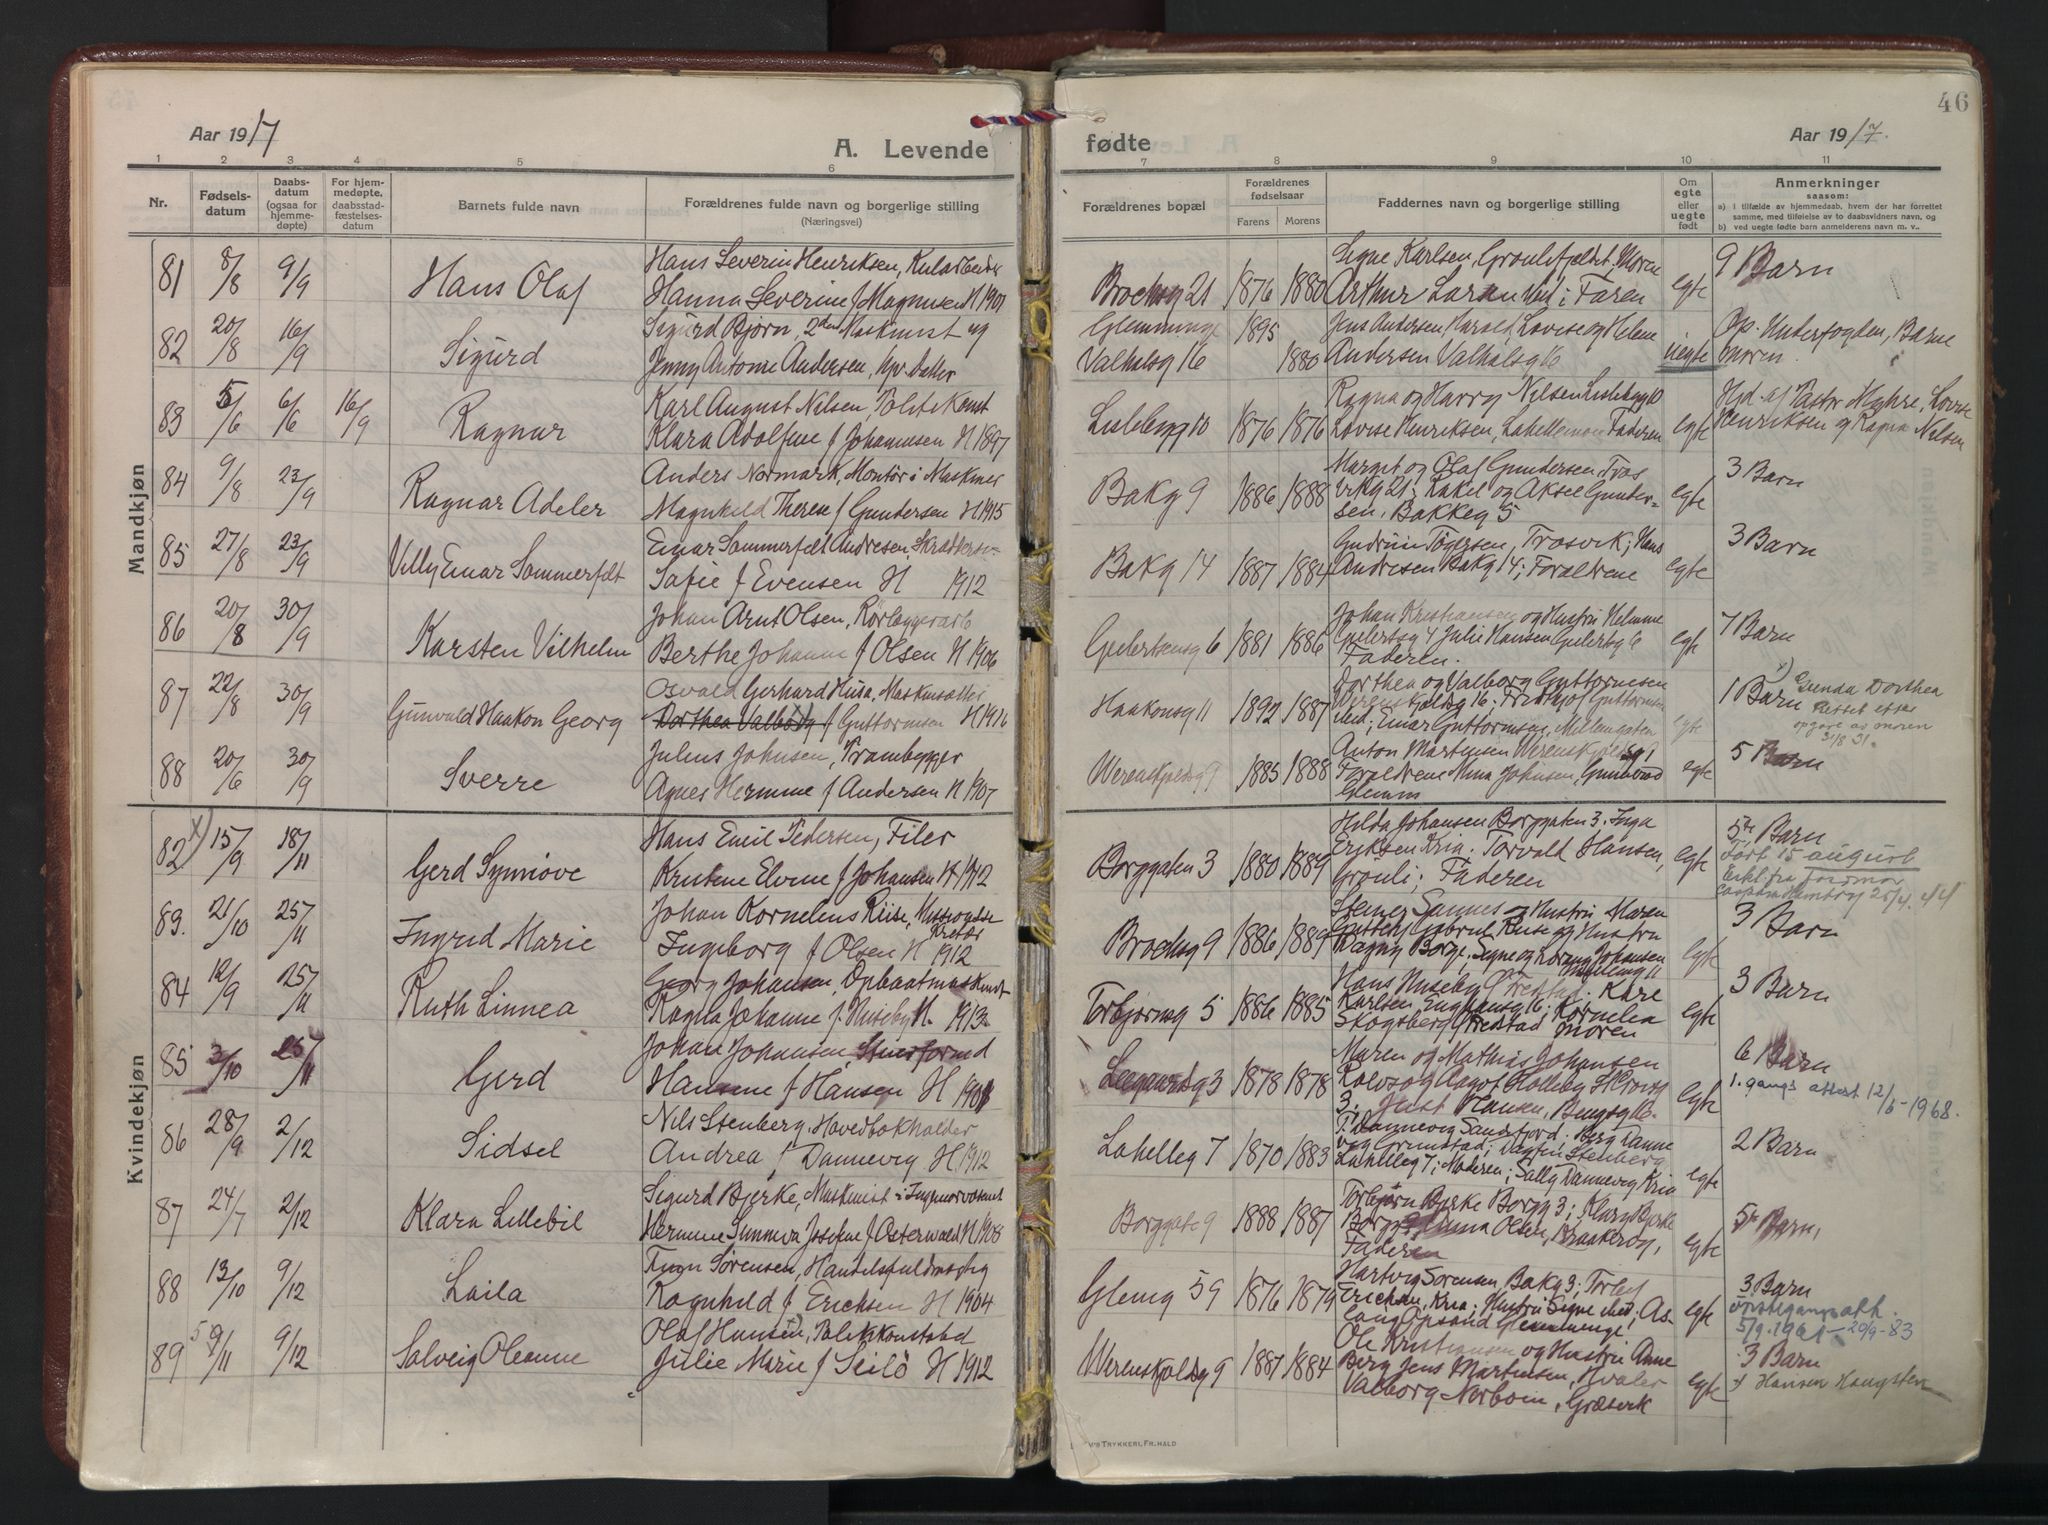 46
Aar 1917
A. Levende
fødte
Aar 1917.
1 2 3 4 5 6 7 8 9 10 11
Nr.
Fødselsdatum
Daabsdatum (ogsaa for hjemmedøpte)
For hjemmedøpte, daabsstadfæstelsesdatum
Barnets fulde navn
Forældrenes fulde navn og borgerlige stilling
(Næringsvei)
Forældrenes bopæl
Forældrenes fødselsaar
Farens Morens
Faddernes navn og borgerlige stilling
Om egte eller uegte født
Anmerkninger
saasom:
a) I tilfælde av hjemmedaab, hvem der har forrettet
samme, med tilføielse av to daabsvidners navn, og
b) ved uegte fødte barn anmelderens navn m. v..
Mandkjøn
81 8/8 9/9 Hans Olaf
Hans Severin Henriksen, Kularbeider
Hanna Severine f Magnusen H 1901
Brochsg 21 1876 1880
Signe Karlsen, Moren
Arthur Larsen Ved; Faren
egte
9 Barn
82 20/8 16/9 Sigurd
Sigurd Bjørn, 2den Maskinist og
Jenny Antonie Andersen, Datter
Glemminge 1895
Valhalsg 16 1880
Jens Andersen, Harald, Lovise og Helene
Andersen Valhalsg 16
uegte
Op. Underfogden, Barnemoren.
83 5/6 6/6 16/9 Ragnar
Karl August Nilsen, Politikonst
Klara Adolfine f Johannesen H 1897
Lislebyg 10 1876 1876
Ragna og Harry Nilsen Lislebyg 10
Lovise Henriksen, Lahellemoen Faderen
egte
Hjd. af Pastor Myhre, Lovise
Henriksen og Ragna Nilsen
84 9/8 23/9 Ragnar Adeler
Anders Normark, Montør i Maskiner
Magnhild Therese f Gundersen H 1915
Bakg 9 1886 1888
Margit og Olaf Gundersen, Tros
vikg 21; Rakel og Aksel Gunder-
sen, Bakkeg 5
egte
3 Barn
85 27/8 23/9 Villy Einar Sommerfelt
Einar Sommerfelt Andresen, Skrædders.
Sofie f Evensen H 1912
Bakg 14 1887 1884
Gudrun Tøgersen, Trosvik; Hans
Andresen Bakg 14; Forældrene
egte
3 Barn
86 20/8 30/9 Karsten Vilhelm
Johan Arnt Olsen, Rørlæggerarb
Berthe Johanne f Olsen H 1906
6 1881 1886
Johan Kristiansen og Hustru Helmine
4 Julie Hansen 6
Faderen.
egte
7 Barn
87 22/8 30/9 Gunvald Haakon Georg
Osvald Gerhard Husa, Maskinsætter
Dorthea Valborg x) f Guttormsen H 1916
Haakonsg 11 1892 1887
Dorthea og Valborg Guttormsen
Werenskjoldsg 16; Fridtjof Guttormsen
Sted, Einar Guttormsen, Mellemgaten
egte
1 Barn
x) Gunda Dorthea
Rettet efter
opgave av moren
31/8 31.
88 20/6 30/9 Sverre
Julius Johnsen, Trambygger
Agnes Hermine f Andersen H 1907
Werenskjoldsg 9 1885 1888
Anton Martinsen Werenskjoldsg 9
Forældrene Mina Johnsen,
Glemm
egte
5 Barn
Kvindekjøn
82 x) 15/9 18/11 Gerd Synnøve
Hans Emil Pedersen, Filer
Kristine Elvine f Johansen H 1912
Borggaten 3 1880 1889
Hilda Johansen Borggaten 3. Inga
Eriksen Kria. Torvald Hansen,
Grouli; Faderen
egte
5te Barn
Født 15 august
25/4. 44
83. 21/10 25/11 Ingrid Marie
Johan Kornelius Riise,
Ingeborg f Olsen H 1912
Brochsg 9 1886 1889
Steiner Sannes og Hustru Maren
Gabriel Riise og Hustru
Ragny Borge. Signe og Johansen
egte
3 Barn
84 12/9 25/11 Ruth Linnea
Georg Johansen, Opbaatmaskinist
Ragna Johanne f. Huseby H. 1913
Torbjørnsg 5 1886 1885
Hans Huseby Fredstad. Kare
Karlsen 16; Kornelia
Skogsberg Fredstad Moren
egte
3 Barn
85 3/10 25/11 Gerd
Johan Johansen, Stuerformd
Hansine f Hansen H 1901
Leganrdsg 3 1878 1878
Maren og Mathias Johansen
Rolvsøg Aagot Rolleby
3; Just Hansen, 16.
egte
6 Barn
1. gangs attest 12/6-1968.
86 28/9 2/12 Sidsel
Nils Stenberg, Hovedbokholder
Andrea f Dannevig H 1912
Lahelleg 7 1870 1883
T. Dannevig Sandefjord; Berg Danne
vig Grimstad; Dagfin Stenberg
Lahelleg 7; Moderen; Sally Dannevig Kria
egte
2 Barn
87 24/7 2/12 Klara Lillebil
Sigurd Bjerke, Maskinist i Ingeniørvæsenet
Hermine Sunneva Josefine f Osterwald H 1908
Borggate 9 1888 1887
Torbjørn Bjerke Borgg 3; Klara Bjerke
Borgg 9, Anna Olsen, Krakerøy,
Faderen
egte
5te Barn,
88 13/10 9/12 Laila
Finn Sørensen, Handelsfuldmægtig
Ragnhild f Erichsen H 1904
Glemg 59 1876 1879
Hartvig Sørensen, Bakg 3; Torleif
Erichsen, Kria; Hustru Signe Sted, As-
laug Opsand Glemminge,
egte
3 Barn
førstegangsatt.
5/9.1961 - 20/9-83
89 5/11 9/12 Solveig Oleanne
Olaf Hansen, Politikonstabel
Julie Marie f Seilø H 1912
Werenskjoldsg 9 1887 1884
Ole Kristiansen og Hustru Anne
Berg Jens Martinsen, Kvaler
Valborg Norboin, Græsvik
egte
3 Barn
+ Hansen Haugsten
TRYKKERI, FR.HALD